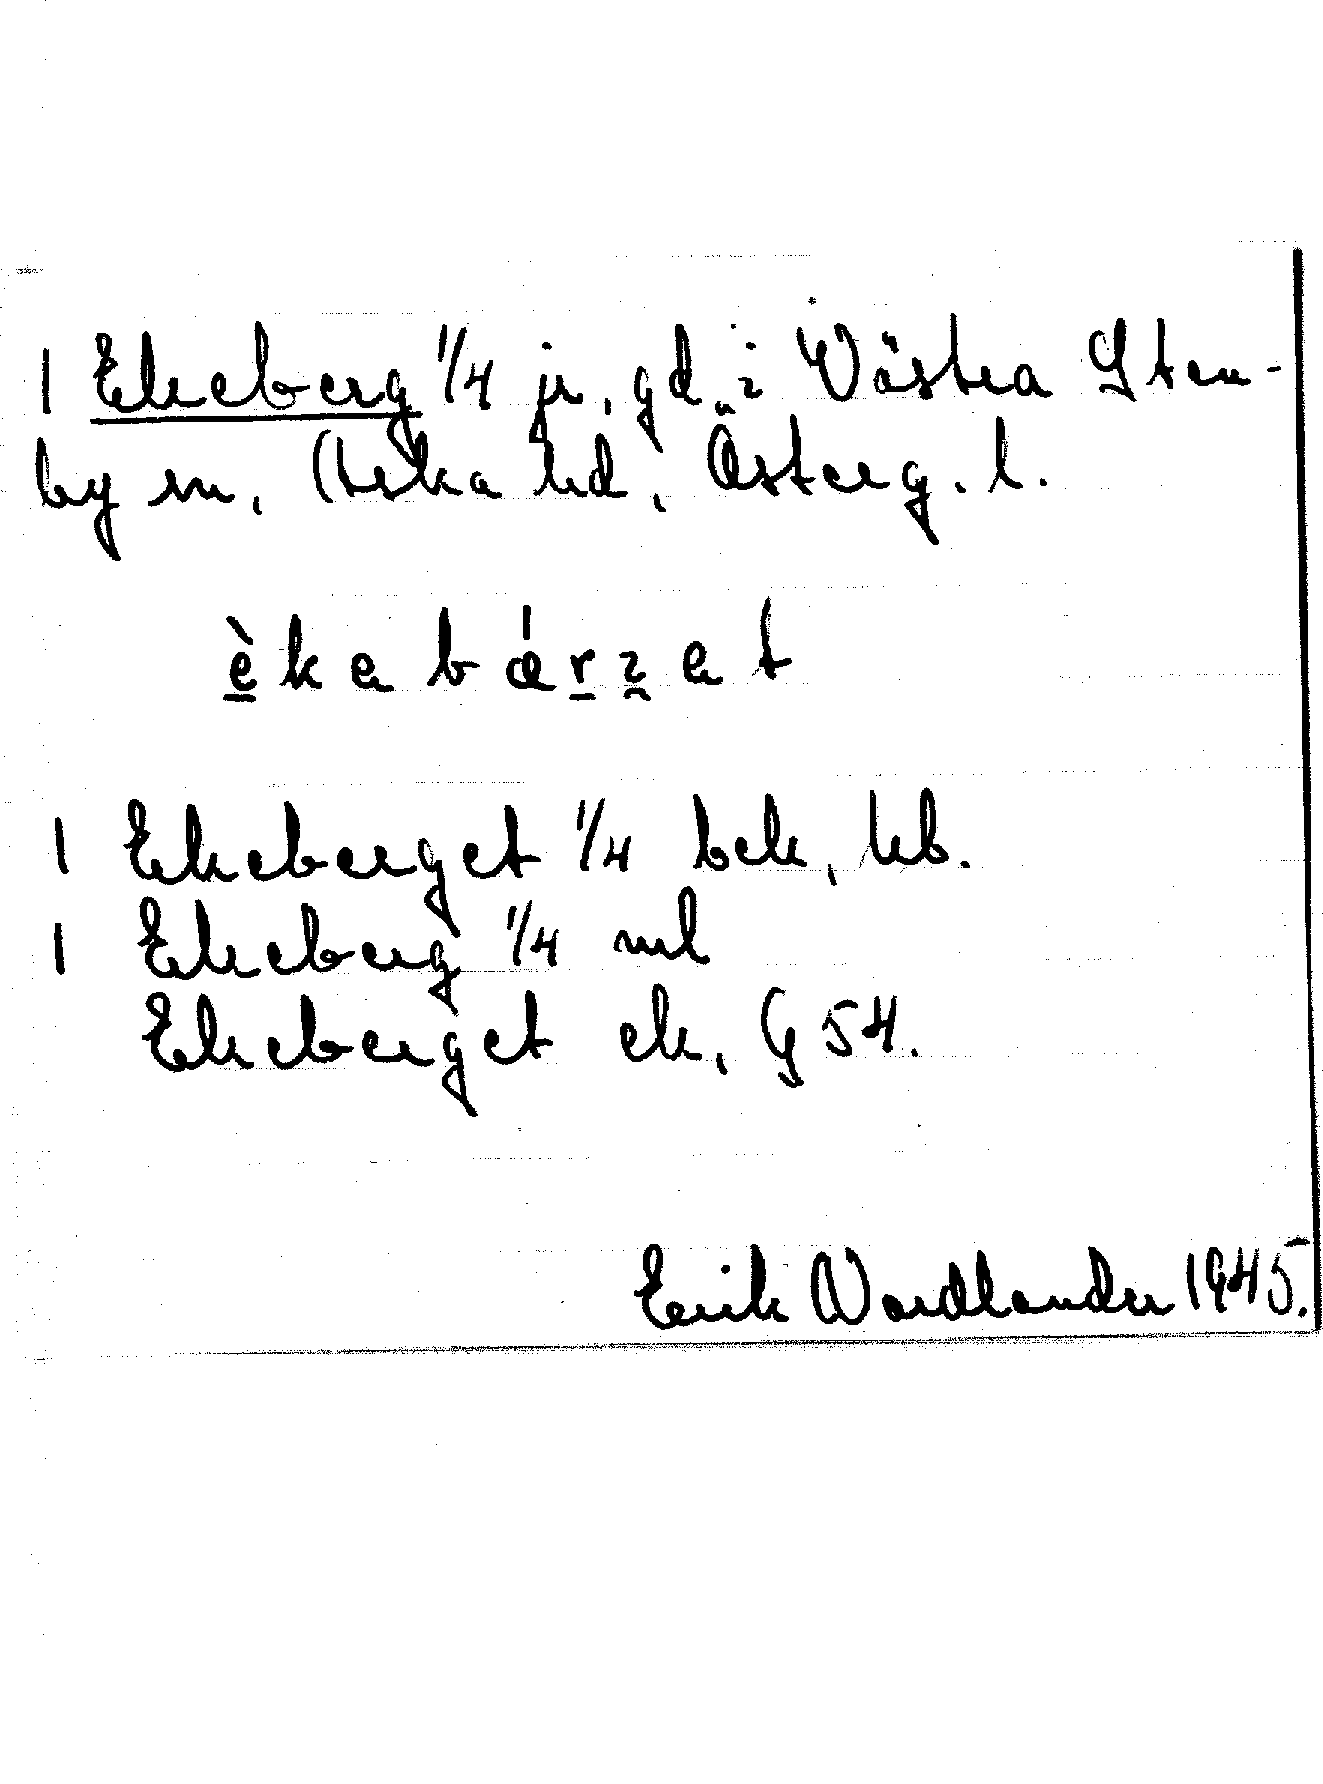 1 Ekeberg 1/4 jr, gd i Västra Sten-
by sn, Aska hd, Österg. l.
è̱kəbǽṟʒət
1 Ekeberget 1/4 bek, kb.
1 Ekeberg 1/4 ml
Ekeberget ek, G 54.
Erik Nordlander 1945.